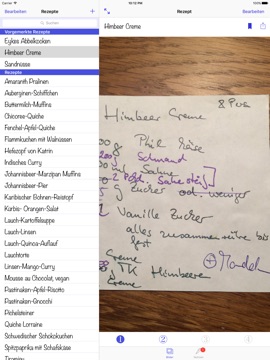 iPad
10:12 PM
100%
Bearbeiten
Rezepte
+
Suchen
Vorgemerkte Rezepte
Eylkes Abbelkocken
Himbeer Creme
Sandnüsse
Rezepte
Amaranth Pralinen
Auberginen-Schiffchen
Buttermilch-Muffins
Chicoree-Quiche
Fenchel-Apfel-Quiche
Flammkuchen mit Walnüssen
Hefezopf von Katrin
Indisches Curry
Johannisbeer-Marzipan Muffins
Johannisbeer-Pie
Karibischer Bohnen-Reistopf
Korbis- Orangen-Salat
Lauch-Kartoffelsuppe
Lauch-Linsen
Lauch-Quinoa-Auflauf
Lauchtorte
Linsen-Mango-Curry
Mousse au Chocolat, vegan
Pastinaken-Apfel-Risotto
Pastinaken-Gnocchi
Pichelsteiner
Quiche Lorraine
Schwedischer Schokokuchen
Spitzpaprika mit Schafskäse
Tiramisu
Rezept
Bearbeiten
Himbeer Creme
8 Pers
Himbeer Creme
g Phil. Käse
200g Schmand
Sahne
2 Pckg. Sahnestfg.
g Zucker od. weniger
2 Vanille Zucker
alles zusammenrühre bis
fest
Creme
TK Himbeeren
Creme
+ Mandeln
1
2
3
4